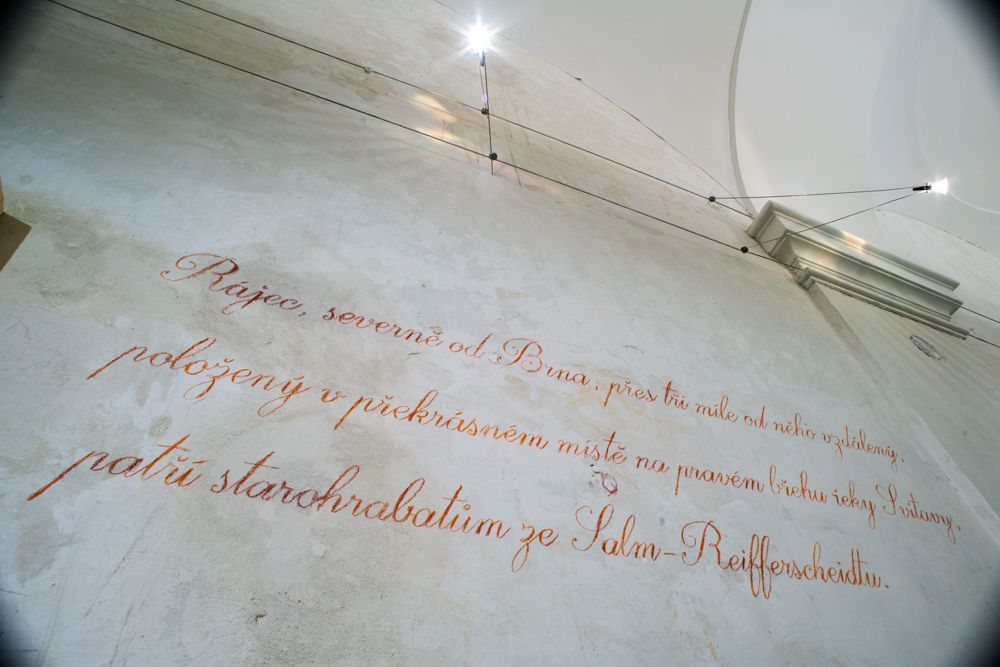 Rájec, severně od Brna, přes tři míle od něho vzdálený,
položený v překrásném místě na pravém břehu řeky Svitavy,
patří starohrabatům ze Salm-Reifferscheidtu.